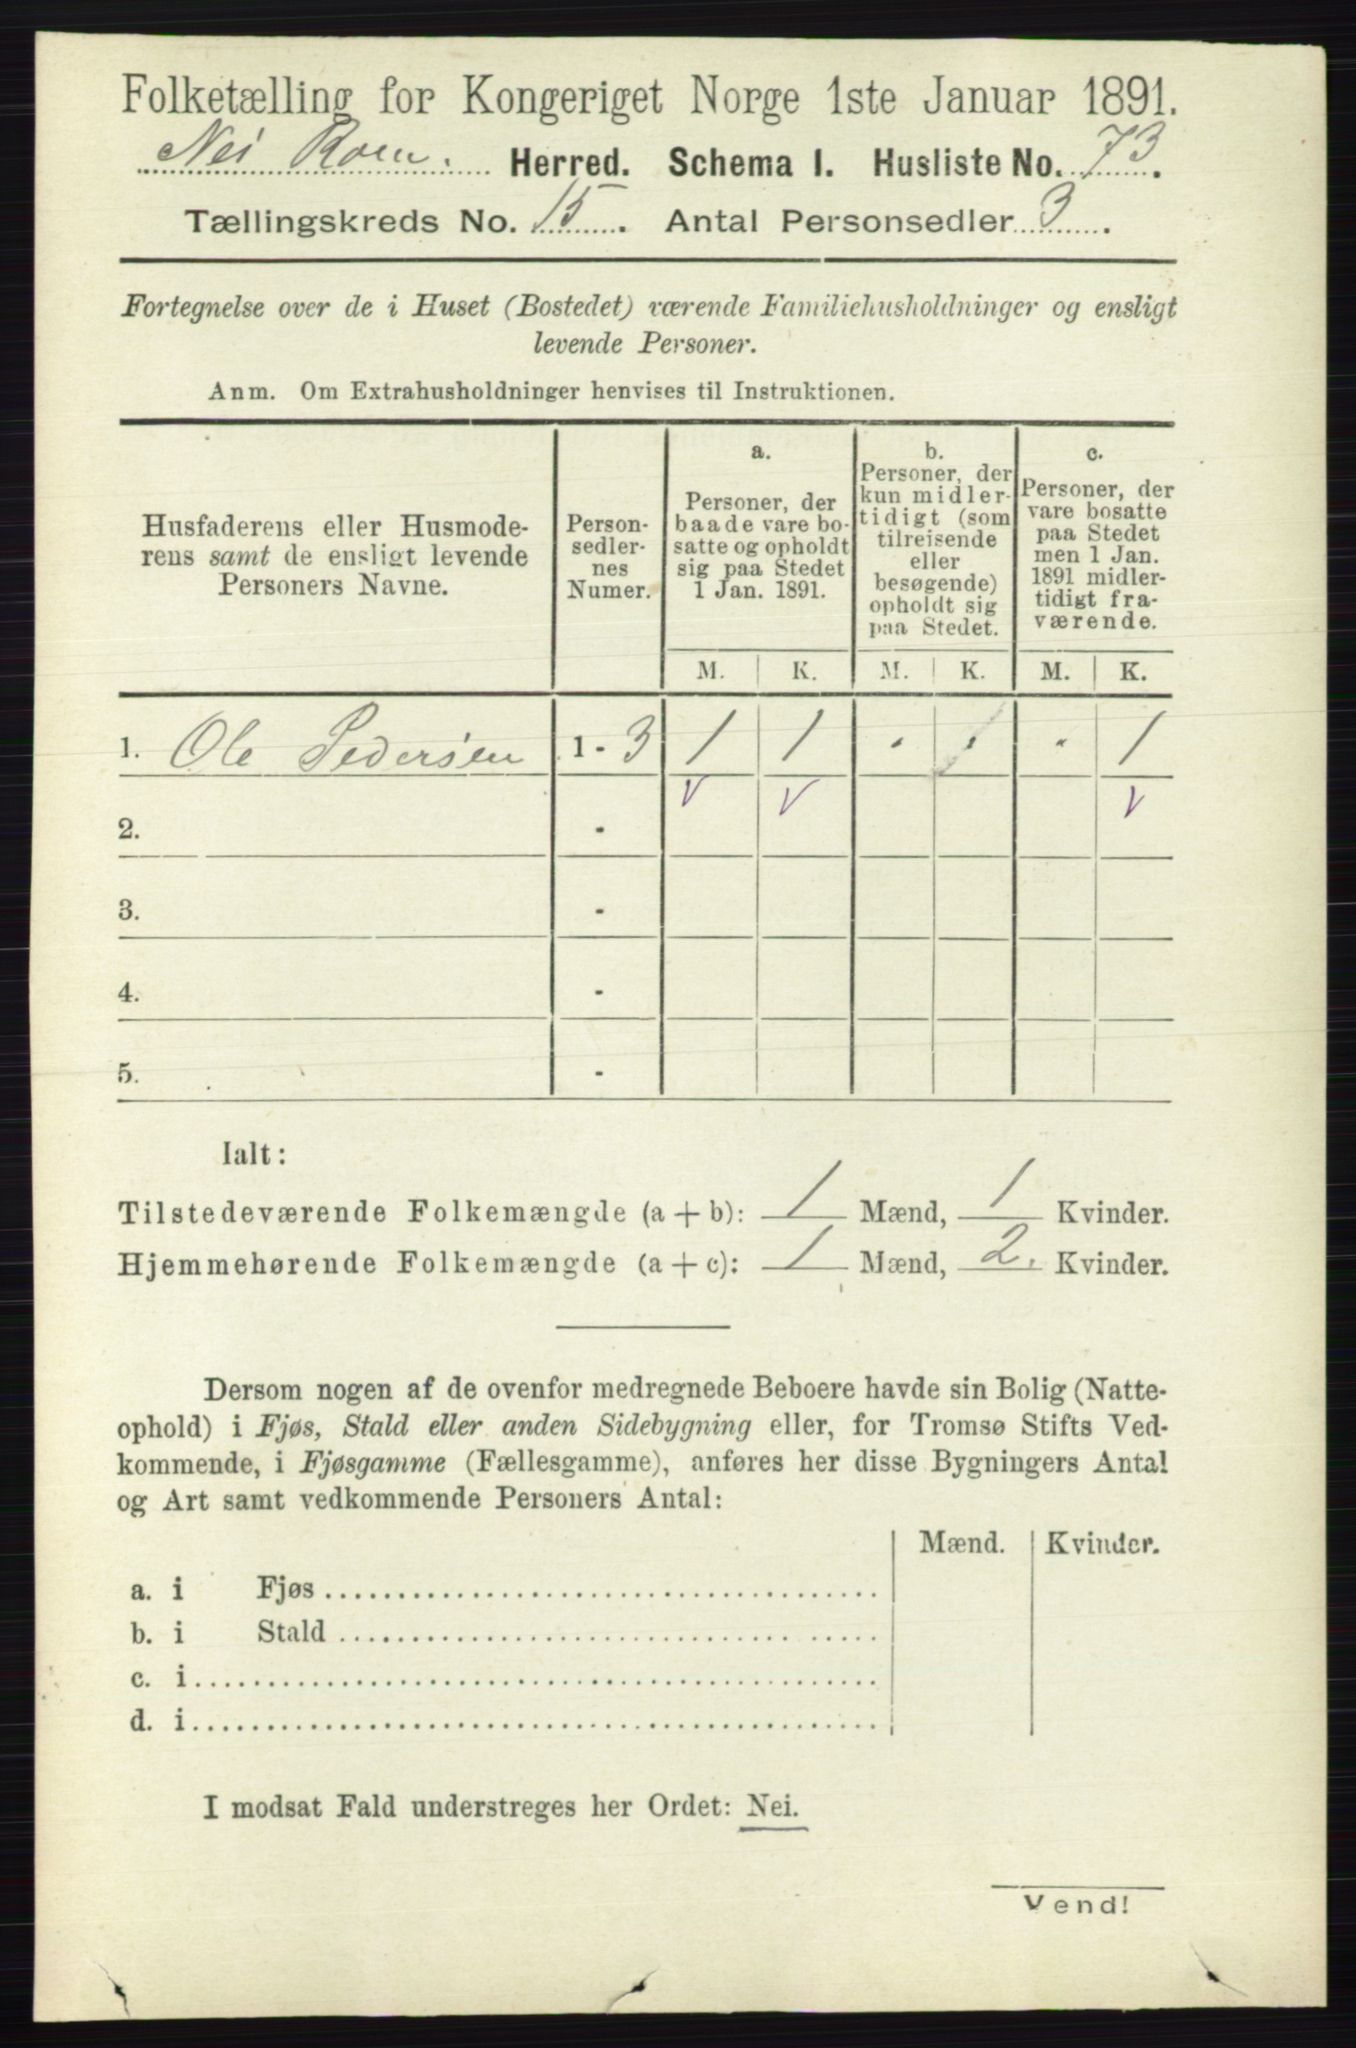 Folketælling for Kongeriget Norge 1ste Januar 1891.
Herred. Schema I. Husliste No. 73.
Tællingskreds No. 15. Antal Personsedler 3.
Fortegnelse over de i Huset (Bostedet) værende Familiehusholdninger og ensligt
levende Personer.
Anm. Om Extrahusholdninger henvises til Instruktionen.
Husfaderens eller Husmode-
rens samt de ensligt levende
Personers Navne.
Person-
sedler-
nes
Numer.
a.
Personer, der
baade vare bo-
satte og opholdt
sig paa Stedet
1 Jan. 1891.
b.
Personer, der
kun midler-
tidigt (som
tilreisende
eller
besøgende)
opholdt sig
paa Stedet.
c.
Personer, der
vare bosatte
paa Stedet
men 1 Jan.
1891 midler-
tidigt fra-
værende.
M. K. M. K. M. K.
1. Ole Pedersen 1 - 3 1 1 · · · 1
V V V
2. -
3. -
4. -
5. -
Ialt:
Tilstedeværende Folkemængde (a + b): 1 Mænd, 1 Kvinder.
Hjemmehørende Folkemængde (a + c): 1 Mænd, 2. Kvinder.
Dersom nogen af de ovenfor medregnede Beboere havde sin Bolig (Natte-
ophold) i Fjøs, Stald eller anden Sidebygning eller, for Tromsø Stifts Ved-
kommende, i Fjøsgamme (Fællesgamme), anføres her disse Bygningers Antal
og Art samt vedkommende Personers Antal:
Mænd. Kvinder.
a. i Fjøs
b. i Stald
c. i
d. i
I modsat Fald understreges her Ordet: Nei.
Vend!